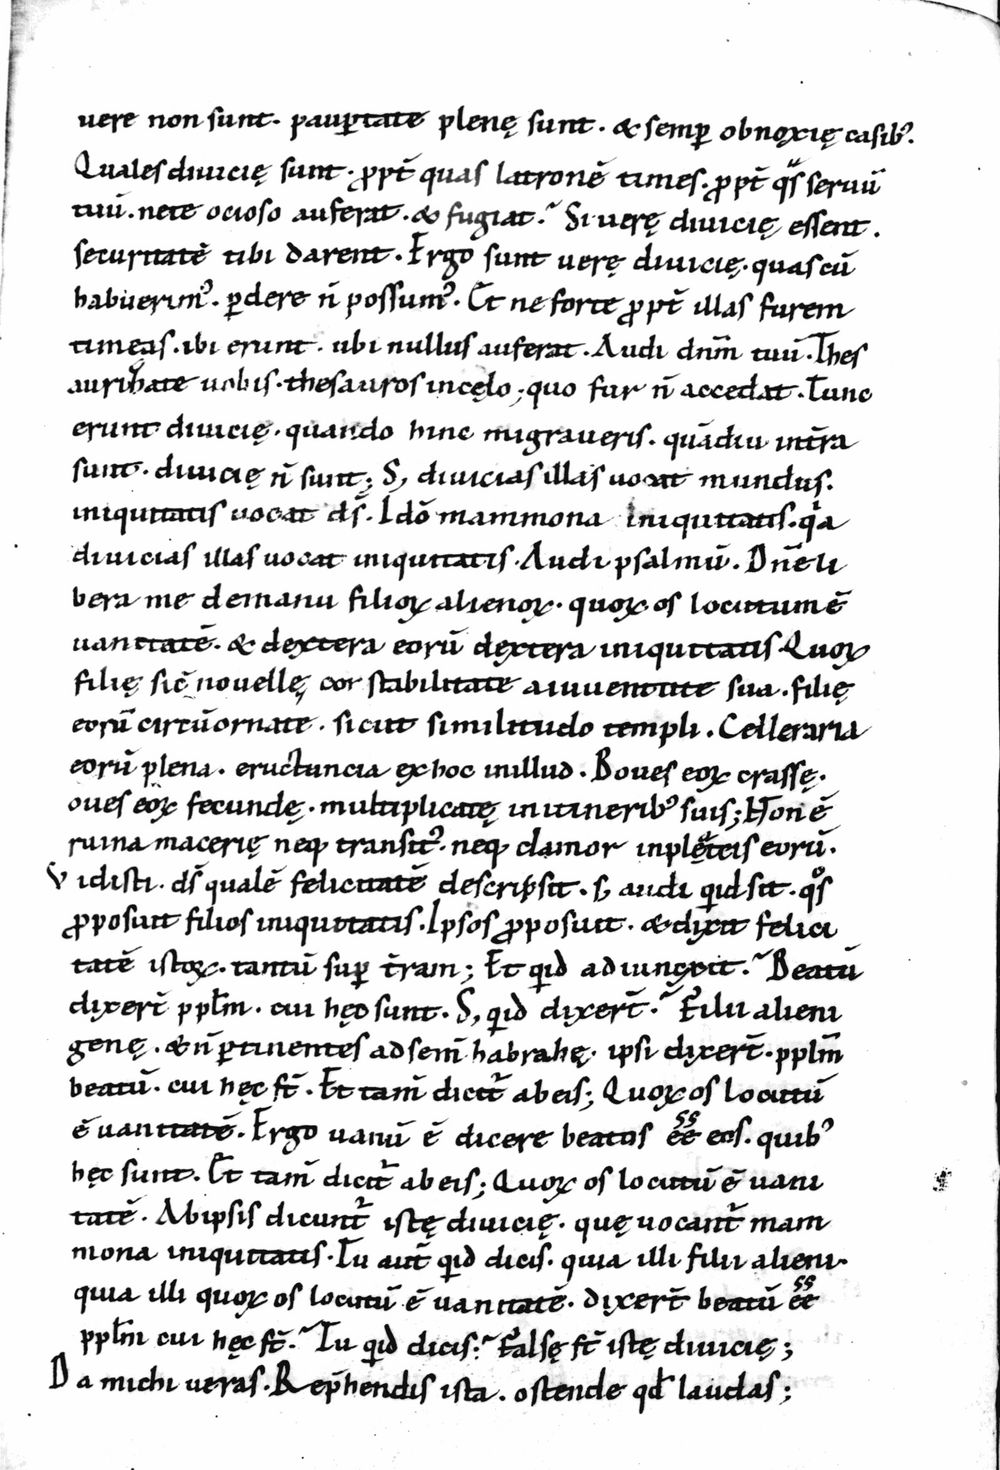 uere non sunt. paup̱tate plenę sunt. & semp̱ obnoxię casibꝰ.
Quales diuicię sunt. ꝓpt̄ quas latronē times. ꝓpt̄ qͣs seruū
tuū. nece ocioso auferat. & fugiat.᷾ Si uerę diuicię essent.
securitatē tibi darent. Ergo sunt uerę diuicię. quas cū
habuerimꝰ. ꝑdere n̄ possumꝰ. Et ne forte ꝓpt̄ illas furem
timeas. ibi erunt. ubi nullus auferat. Audi dn̄m tuū. Thes
aurizate uobis. thesauros in cęlo; quo fur n̄ accedat. Tunc
erunt diuicię. quando hinc migraueris. quādiu int̄ra
sunt. diuicię n̄ sunt; S; diuicias illas uocat mundus.
iniquitatis uocat ds̄. Idō mammona iniquitatis. qͥa
diuicias illas uocat iniquitatis. Audi psalmū. Dn̄e li
bera me de manu filioꝝ alienoꝝ. quoꝝ os locutum ē
uanitatē. & dextera eorū dextera iniquitatis Quoꝝ
filię sic̄ nouellę cor stabilitate a iuuentute sua. filię
eorū circūornate. sicut similitudo templi. Celleraria
eorū plena. eructuncia ex hoc in illud. Boues eoꝝ crassę.
oues eoꝝ fecundę. multiplicatę in itineribꝰ suis; Non ē
ruina macerię neqꝫ transitꝰ. neqꝫ clamor in plateis eorū.
Vidisti. ds̄ qualē felicitatē descripsit. s; audi qͥd sit. qͦs
ꝓposuit filios iniquitatis. Ipsos ꝓposuit. & dixit felici
tatē istoꝝ. tantū suꝑ t̄ram; Et qͥd adiunxit.᷾ Beatū
dixer̄t pplm̄. cui hęc sunt. S; qͥd dixer̄t.᷾ Filii alieni
genę. & n̄ ꝑtinentes ad sem̄ habrahę. ipsi dixer̄t. pplm̄
beatū. cui hęc st̄. Et tam̄ dicit̄ ab eis; Quoꝝ os locutū
ē uanitatē. Ergo uanū ē dicere beatos ēe eos. quibꝰ
hęc sunt. Et tam̄ dicit̄ ab eis; Quoꝝ os locutū ē uani
tatē. Ab ipsis dicunt̄ istę diuicię. quę uocant̄ mam
mona iniquitatis. Tu aut̄ qͥd dicis. quia illi filii alieni.
quia illi quoꝝ os locutū ē uanitatē. dixer̄t beatū ēe
pplm̄ cui hęc st̄.᷾ Tu qͥd dicis.᷾ Falsę st̄ istę diuicię;
Da michi ueras. Rep̄hendis ista. ostende qd̄ laudas;